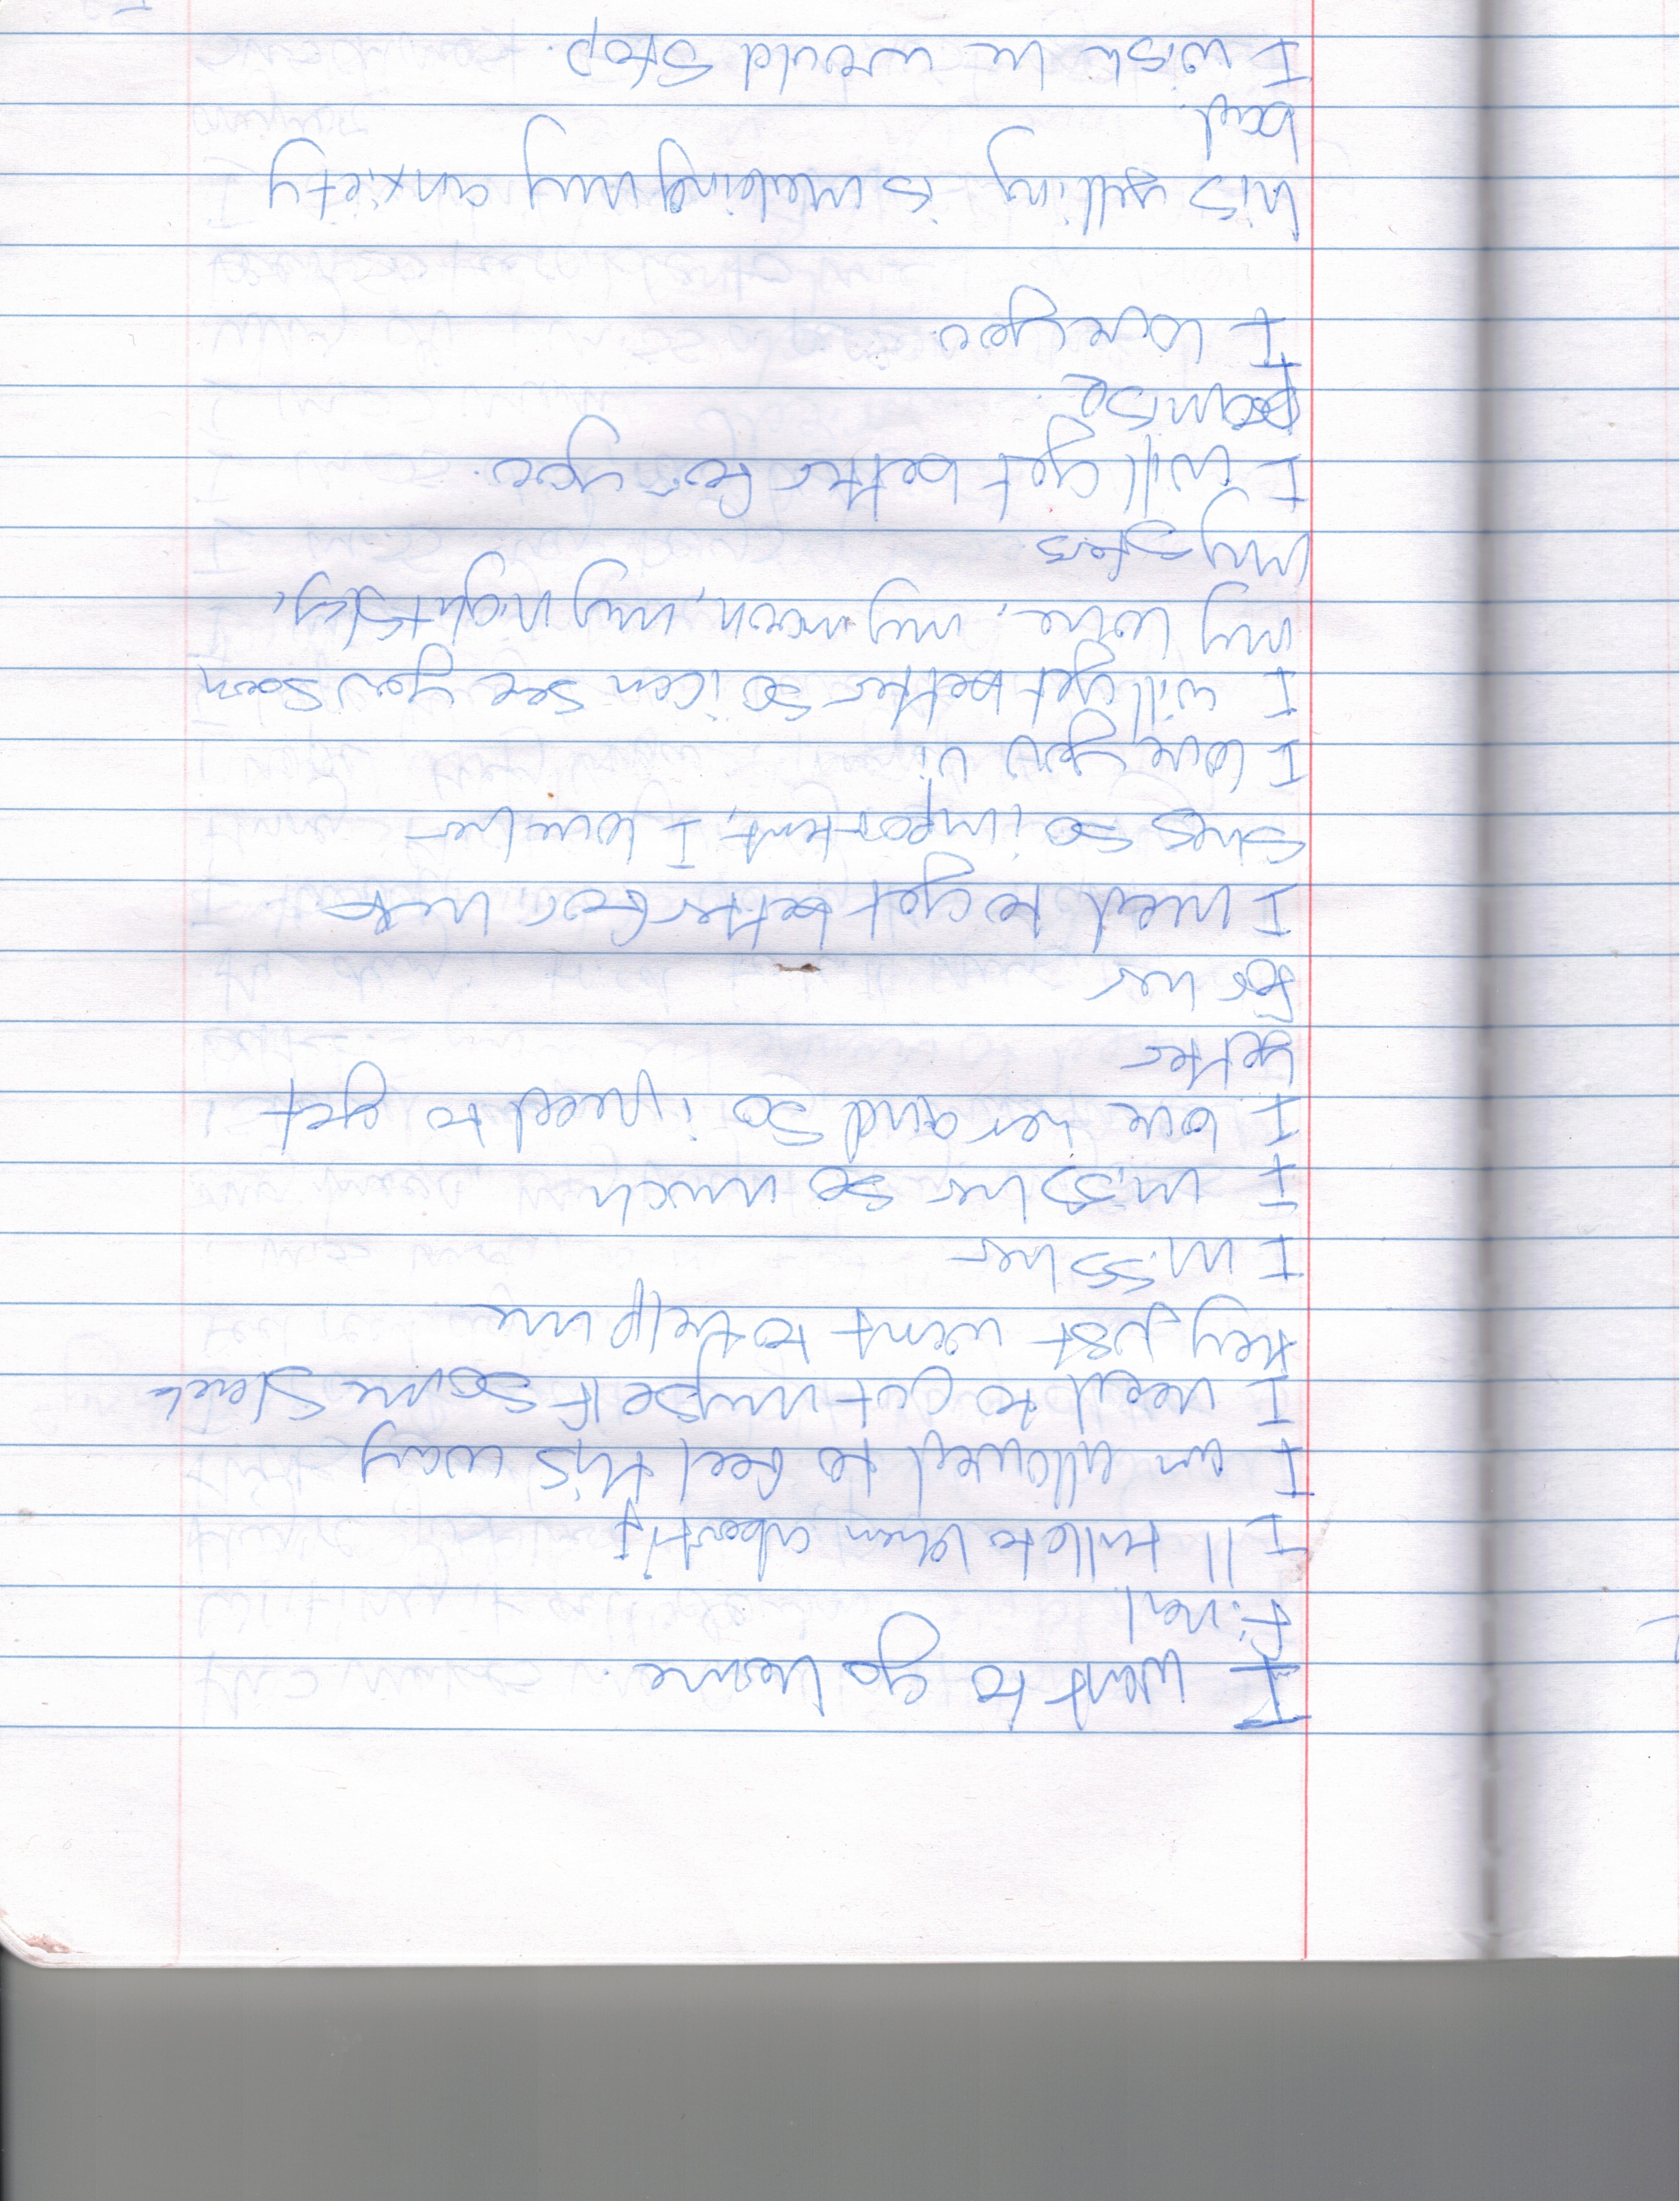 I want to go home.
Fine!
I'll talk to them about it
I am allowed to feel this way
I need to cut myself some slack
they just want to help me
I miss her
I miss her so much
I love her and so i need to get
better
for her
I need to get better for her
Shes so important, I love her
I love you
I will get better so i can see you soon
my love, my moon, my night sky,
my stars
I will get better for you.
promise.
I love you.
his yelling is making my anxiety
bad.
I wish he would stop.